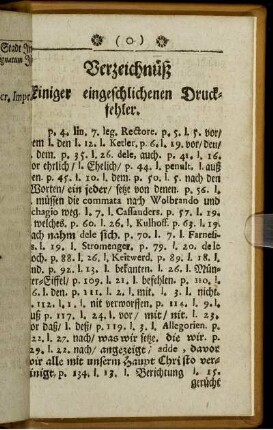 ( o )
Stadt
Verzeichnüß
einiger eingeschlichenen Druck-
fehler.
p. 4. lin. 7. leg. Rectore. p. 5. l. 5. vor/
dem l. den l. 12. l. Ketler, p. 6. l. 19. vor/den/
dem. p. 35. l. 26. dele, auch. p. 41. l. 16.
vor ehrlich/ l. Ehrlich/ p. 44. l. penult. l. auß
p. 45. l. 10. l. dem. p. 50. l. 5. nach den
Worten/ ein jeder/ setze von denen. p. 56. l.
l. müssen die commata nach Wolbrando und
weg. l. 7. l. Cassanders. p. 57. l. 19.
welches. p. 60. l. 26. l. Kulhoff. p. 63. l. 19.
nach nahm dele sich. p. 70. l. 7. l. Farnesi-
l. 19. l. Stromenger. p. 79. l. 20. dele
noch. p. 88. l. 26. l. Keitwerd. p. 89. l. 18. l.
und. p. 92. l. 13. l. bekanten. l. 26. l. Mün-
p. 109. l. 21. l. befehlen. p. 110. l.
6. l. den. p. 111. l. 2. l. mit. l. 3. l. nichts.
112. l. 1. l. nit verworffen. p. 114. l. 9. l.
auß p. 117. l. 24. l. vor/ mit/ mit. l. 23.
vor daß/ l. deß/ p. 119. l. 3. l. Allegorien. p.
l. 27. nach/ was wir setze, die wir. p.
29. l. 22. nach/ angezeigt/ adde, davor
wir alle mit unserm Haupt Christo ver-
einigt, p. 134. l. 13. l. Berichtung l. 15.
gerücht